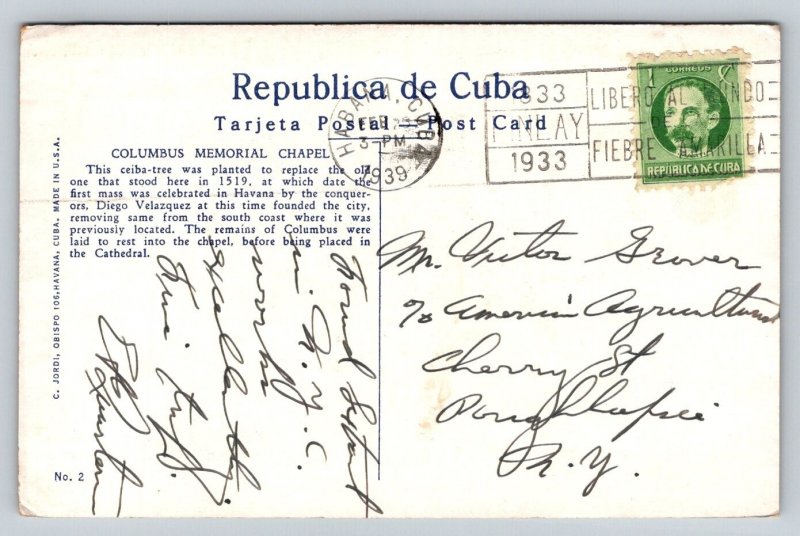 Republica de Cuba
Tarjeta Postal — Post Card
COLUMBUS MEMORIAL CHAPEL
This ceiba-tree was planted to replace the old
one that stood here in 1519, at which date the
first mass was celebrated in Havana by the conquer-
ors, Diego Velazquez at this time founded the city,
removing same from the south coast where it was
previously located. The remains of Columbus were
laid to rest into the chapel, before being placed in
the Cathedral.
C. JORDI, OBISPO 106, HAVANA, CUBA. MADE IN U.S.A.
No. 2
HABANA, CUBA
FEB
3-PM
1939
1933
FINLAY
1933
LIBERO AL MUNDO
FIEBRE AMARILLA
CORREOS
1 C
REPUBLICA DE CUBA
Mr. Victor Grover
c/o American Agricultural
Cherry St
Poughkeepsie
N. Y.
in N.Y.C.